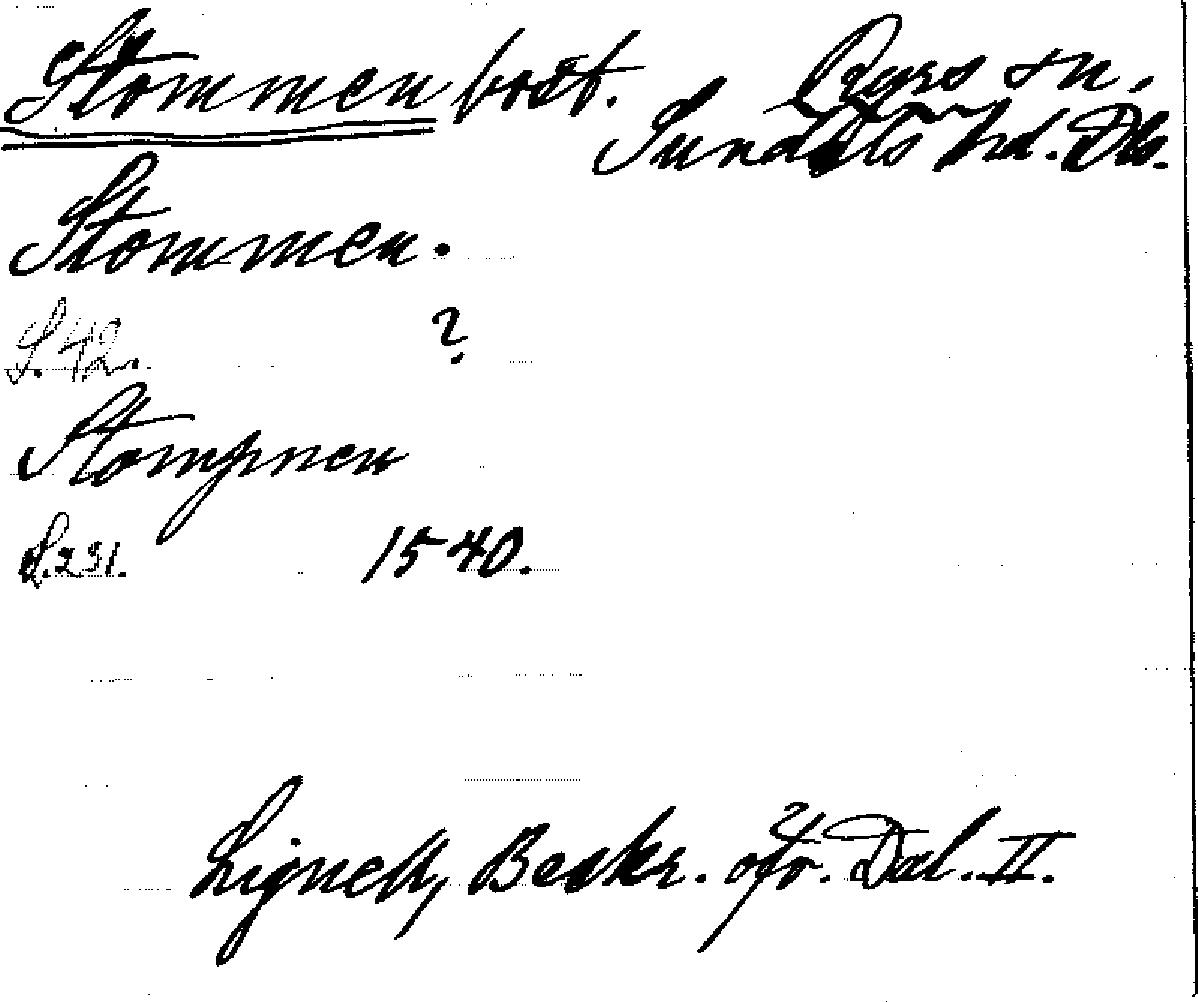 Stommen bost. Ryrs sn,
Sundals hd. Dls.
Stommen.
S. 42. ?
Stompnen
S. 231. 1540.
Lignell, Beskr. öfv. Dal. II.